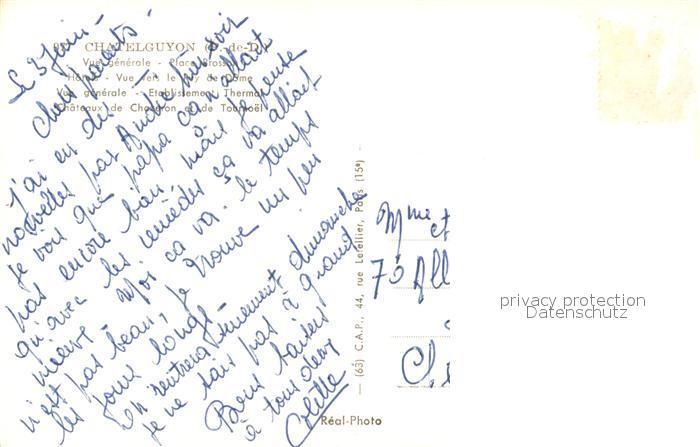 CHATELGUYON (P.-de-D.)
Vue générale - Place Brosson
Hôtel - Vue vers le Puy de Dôme
Vue générale - Etablissement Thermal
Châteaux de Chazeron et de Tournoël
Le 3 Juin -
Chers parents -
J'ai eu des
nouvelles par André hier soir
Je vois que papa ça n'allait
pas encore bien, mais je pense
qu'avec les remèdes ça va aller
mieux - Moi ça va. le temps
n'est pas beau, je trouve un peu
les jours longs -
On rentrera sûrement dimanche
je ne sais pas à quand
Bons baisers
à tous deux
Colette
(63) C.A.P., 44, rue Letellier, Paris (15e)
Réal-Photo
Mme et
73 All
Ch
privacy protection
Datenschutz